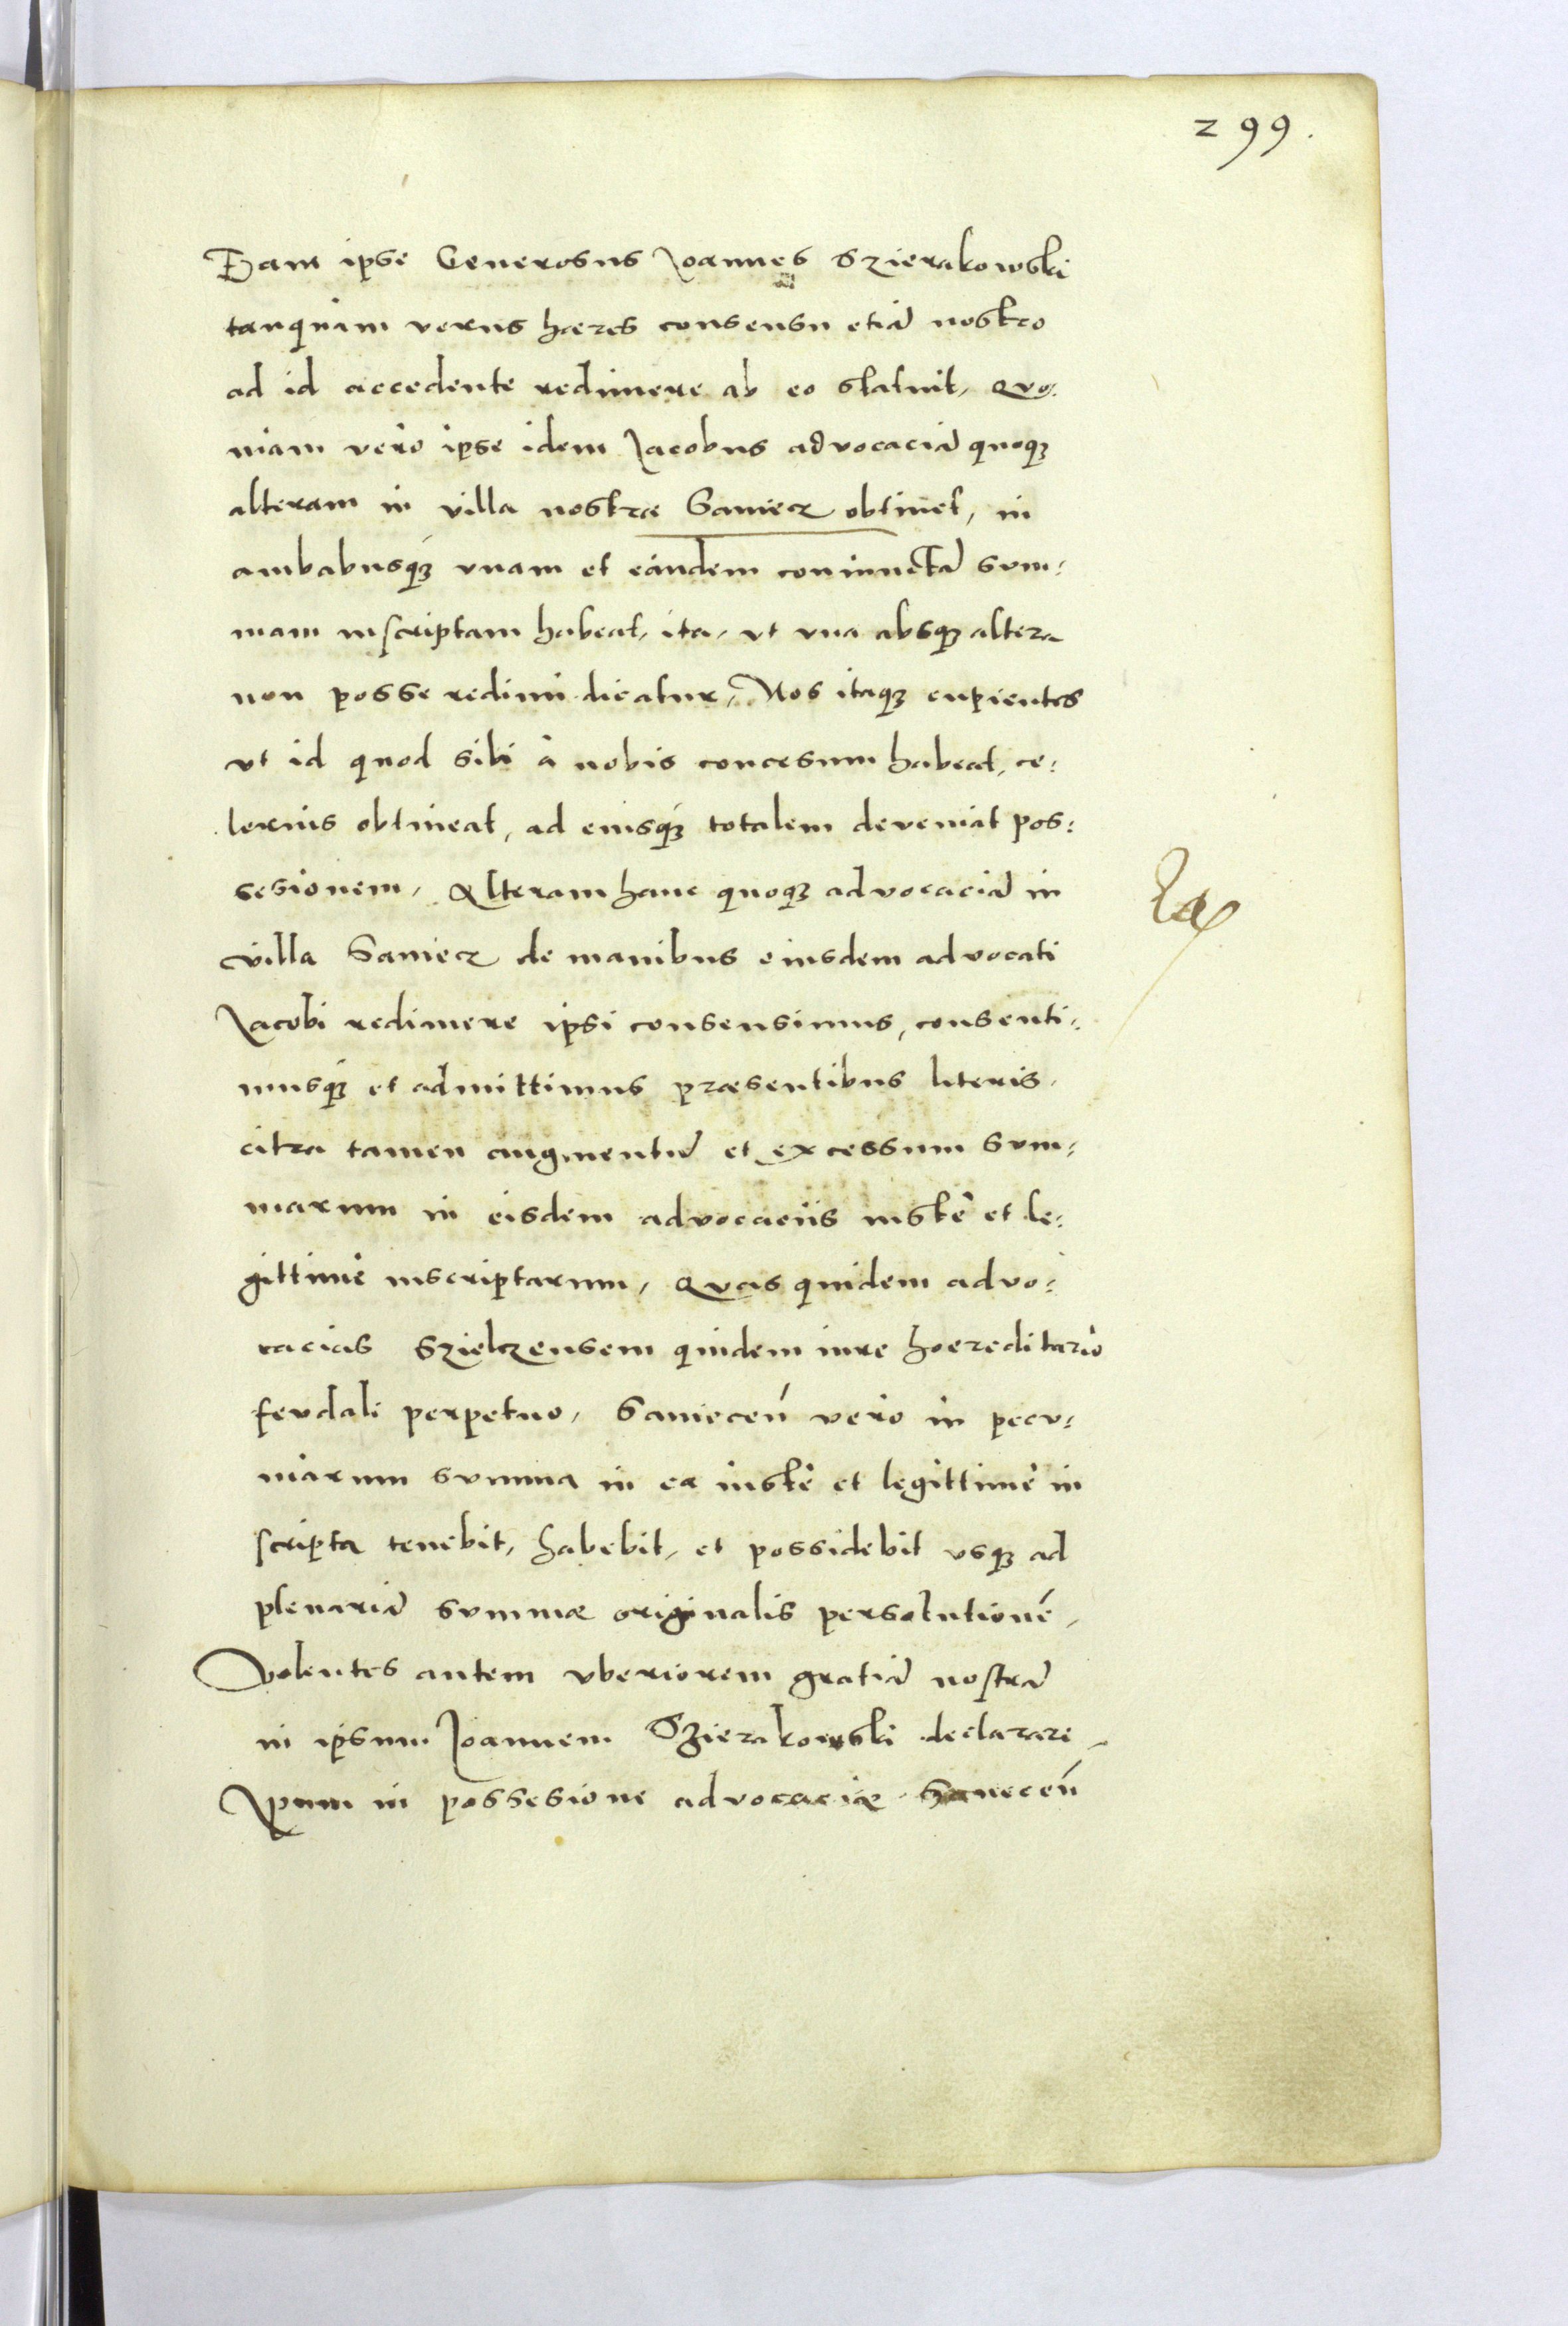 299.
Eam ipse Generosus Joannes Szierakowski
tanquam verus hæres consensu etiã nostro
ad id accedente redimere ab eo statuit, Quo¬
niam verò ipse idem Jacobus advocaciã quoqꝫ
alteram in villa nostra Saniecz obtinet, in
ambabusqꝫ vnam et eandem coniunctã sum¬
mam inscriptam habeat, ita, vt vna absqꝫ altera
non posse redimi dicatur, Nos itaqꝫ cupientes
vt id quod sibi à nobis concesum habeat, ce¬
lerius obtineat, ad eiusqꝫ totalem deveniat pos¬
sesionem, Alteram hanc quoqꝫ advocaciã in
villa Saniecz de manibus eiusdem advocati
Jacobi redimere ipsi consensimus, consenti¬
musqꝫ et admittimus præsentibus literis,
citra tamen augmentũ et excessum sum¬
marum in eisdem advocaciis iustè et le¬
gittimè inscriptarum, Quas quidem advo¬
cacias Szielczensem quidem iure hoereditario
feudali perpetuo, Saniecen̄ verò in pecu¬
niarum summa in ea iustè et legittimè in
scripta tenebit, habebit, et possidebit vsqꝫ ad
plenariã summæ originalis persolutionẽ,
Volentes autem vberiorem gratiã nostrã
in ipsum Joannem Szierakowski declarare,
Ipsum in possesione advocaciæ Saniecen̄